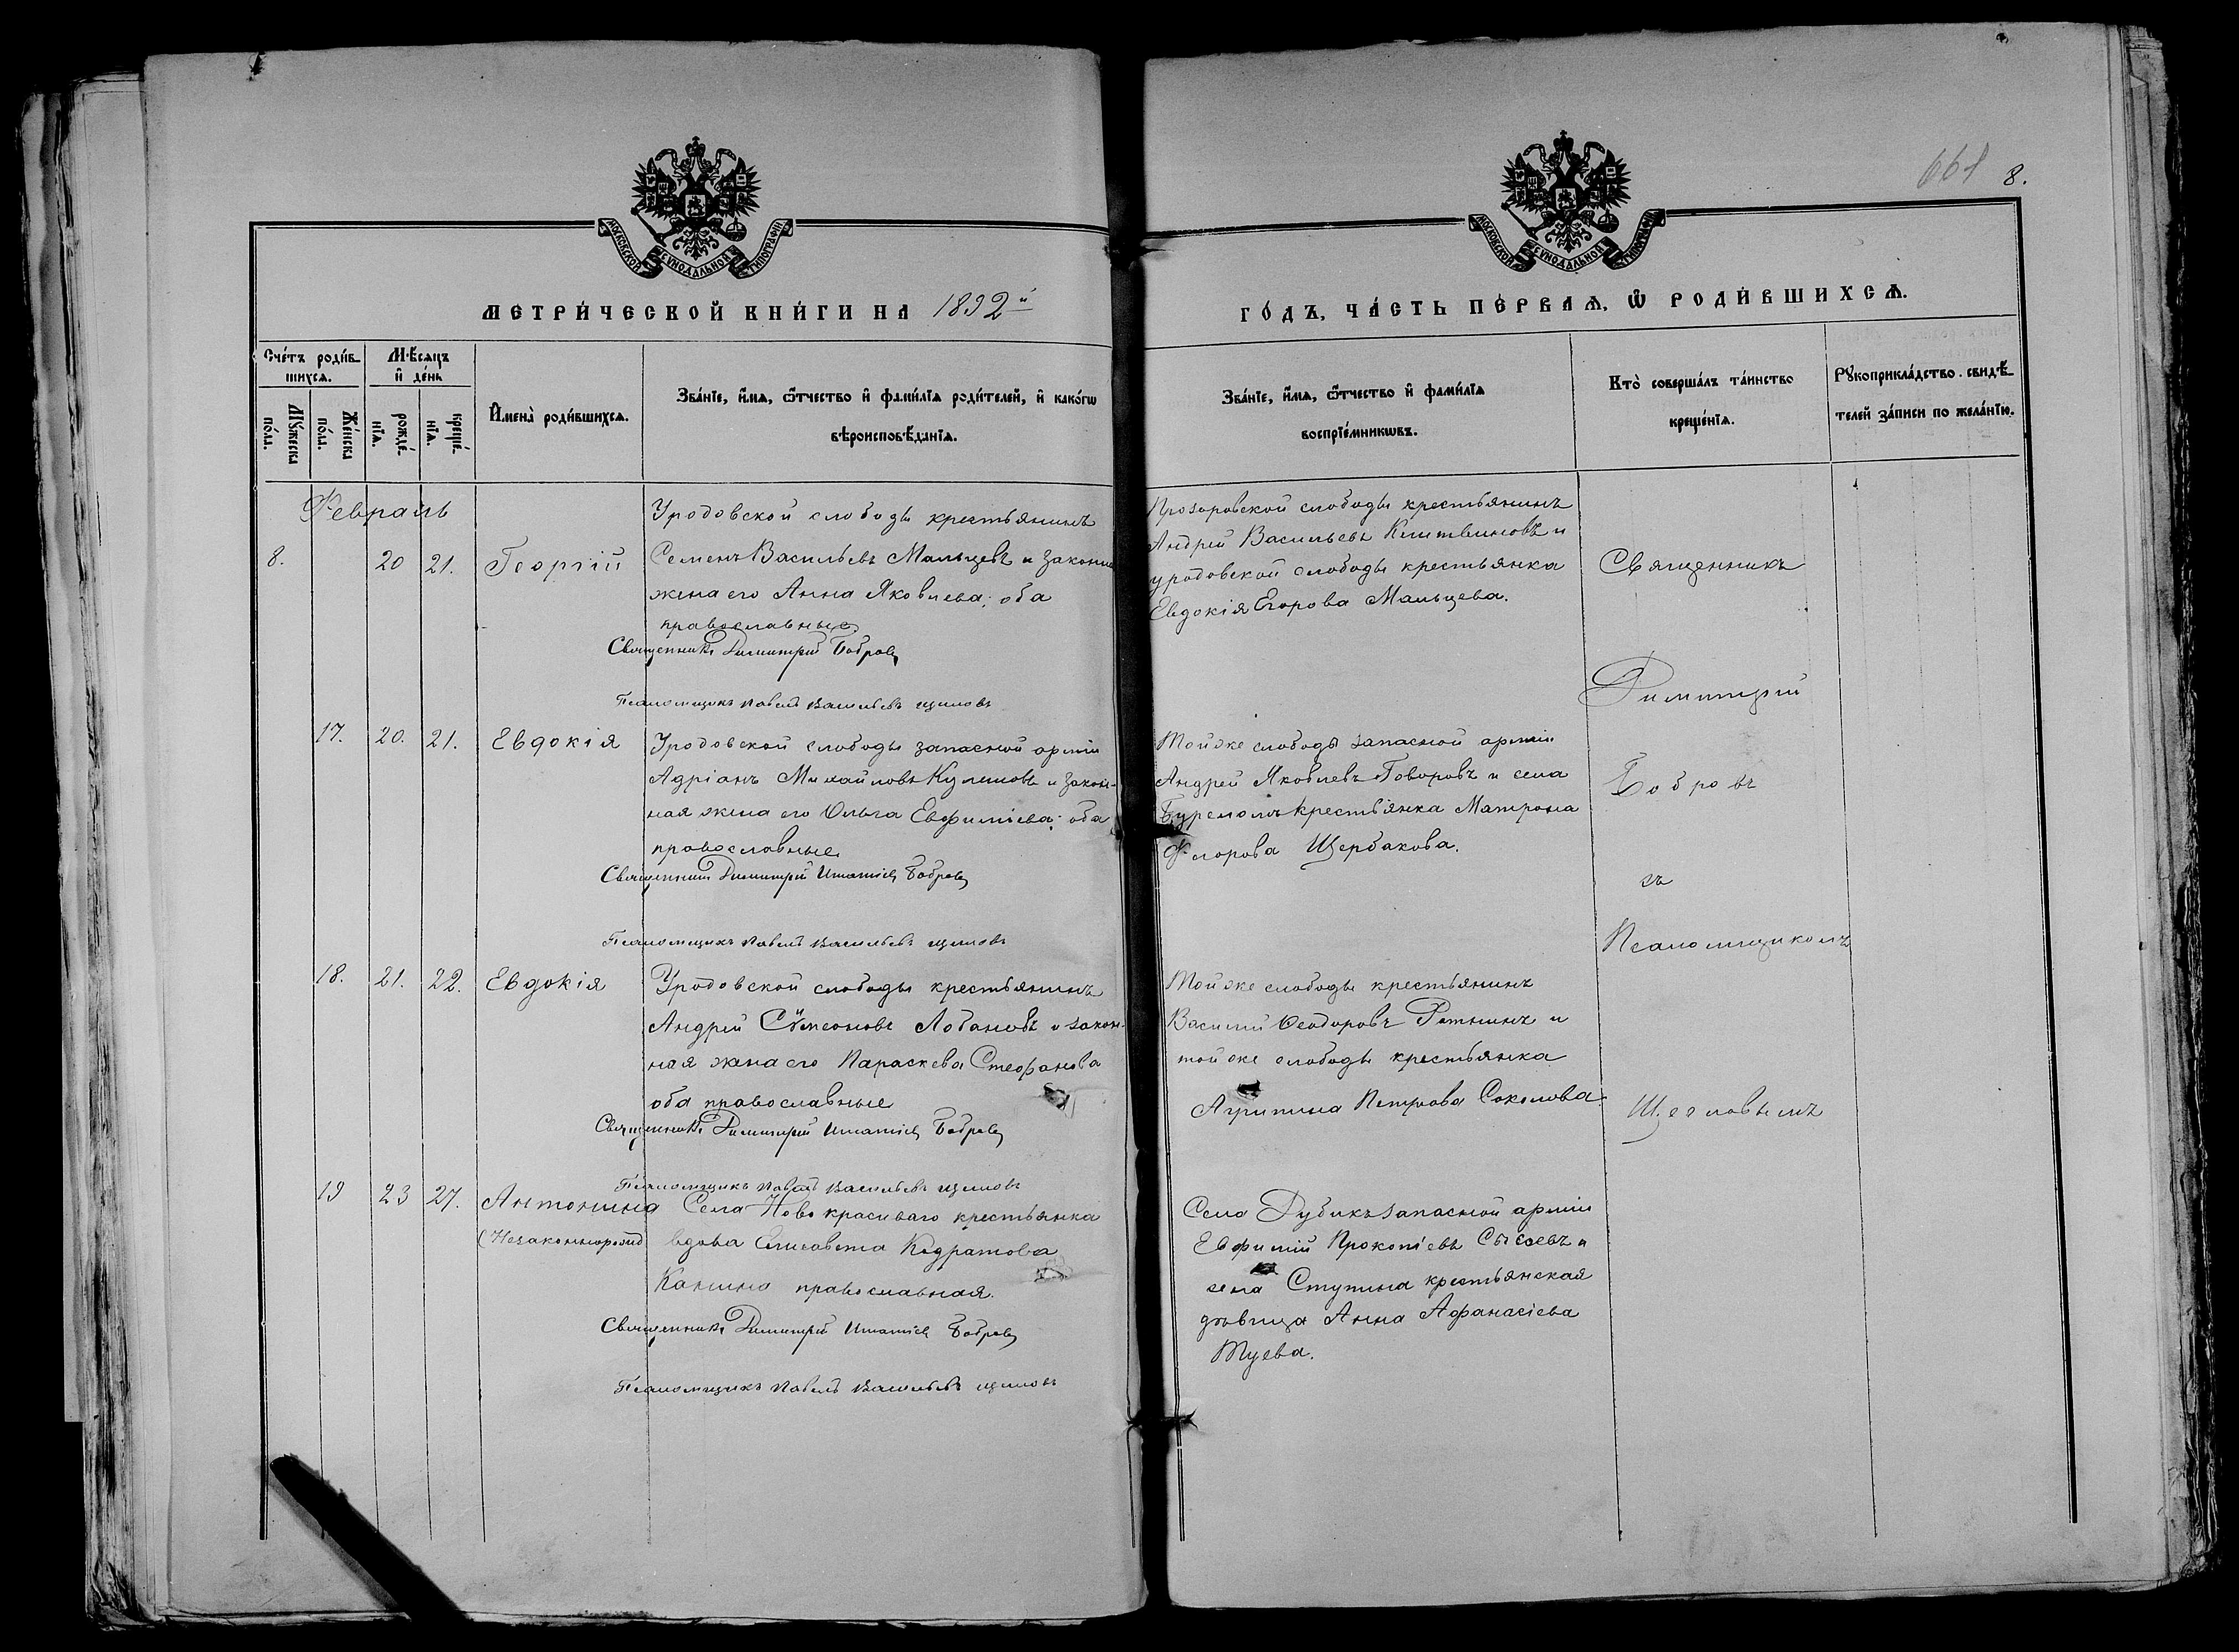 661 8.
МОСКОВСКОЙ СѴНОДАЛЬНОЙ ТИПОГРАФІИ
МЕТРИЧЕСКОЙ КНИГИ НА 1892й
Счетъ родившихся.
Мѣсяцъ и день
Мужеска пола.
Женска пола.
рожденія.
крещенія.
Имена родившихся.
Званіе, имя, отчество и фамилія родителей, и какого
вѣроисповѣданія.
Февраль
Уродовской слободы крестьянинъ
8. 20 21. Георгій Семенъ Васильевъ Мальцевъ и законн
жена его Анна Яковлева; оба
православные
Священникъ Димитрій Бобровъ
Псаломщикъ Павелъ Васильевъ
17. 20. 21. Евдокія Уродовской слободы запасной арміи
Адріанъ Михайловъ Кулешовъ и закон-
ная жена его Ольга Евфиміева; оба
православные
Священникъ Димитрій Бобровъ
Псаломщикъ Павелъ Васильевъ
18. 21. 22. Евдокія Уродовской слободы крестьянинъ
Андрей Сѵмеоновъ Лобановъ и закон-
ная жена его Параскева Стефанова
оба православные
Священникъ Димитрій Бобровъ
Псаломщикъ Павелъ Васильевъ
19 23 27. Антонина Села Ново красиваго крестьянка
(Незаконнорожд вдова Елисавета Кодратова
Канина православная.
Священникъ Димитрій Бобровъ
Псаломщикъ Павелъ Васильевъ
МОСКОВСКОЙ СѴНОДАЛЬНОЙ ТИПОГРАФІИ
ГОДЪ, ЧАСТЬ ПЕРВАЯ, Ѡ РОДИВШИХСЯ.
Званіе, имя, отчество и фамилія
воспріемниковъ.
Кто совершалъ таинство
крещенія.
Рукоприкладство свидѣ-
телей записи по желанію.
Прозоровской слободы крестьянинъ
Андрей Васильевъ и
уродовской слободы крестьянка
Евдокія Егорова Мальцева.
Тойже слободы запасной арміи
Андрей Яковлевъ Говоровъ и села
крестьянка Матрона
Флорова Щербакова.
Тойже слободы крестьянинъ
Василій Ѳеодоровъ и
той же слободы крестьянка
Агрипина Петрова Соколова.
Села Дубикъ запасной арміи
Евфимій Прокопіевъ Сысоевъ и
села Ступина крестьянская
дѣвица Анна Афанасіева
Туева.
Священникъ
Димитрій
Бобровъ
съ
Псаломщикомъ
Щегловымъ